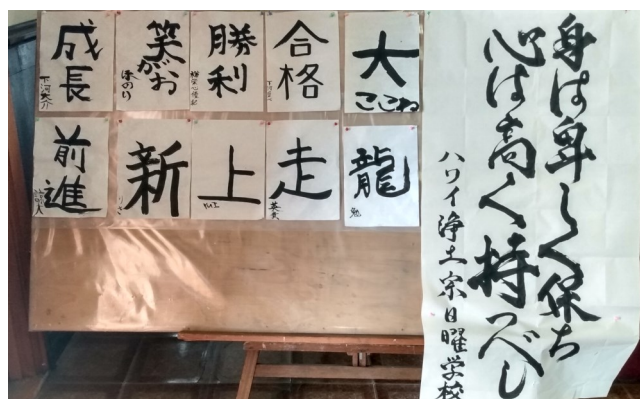 成長
笑がお
ほのり
勝利
合格
大
ここね
前進
新
りさ
上
YUI
走
龍
勉
身は卑しく保ち
心は高く持つべし
ハワイ浄土宗日曜学校